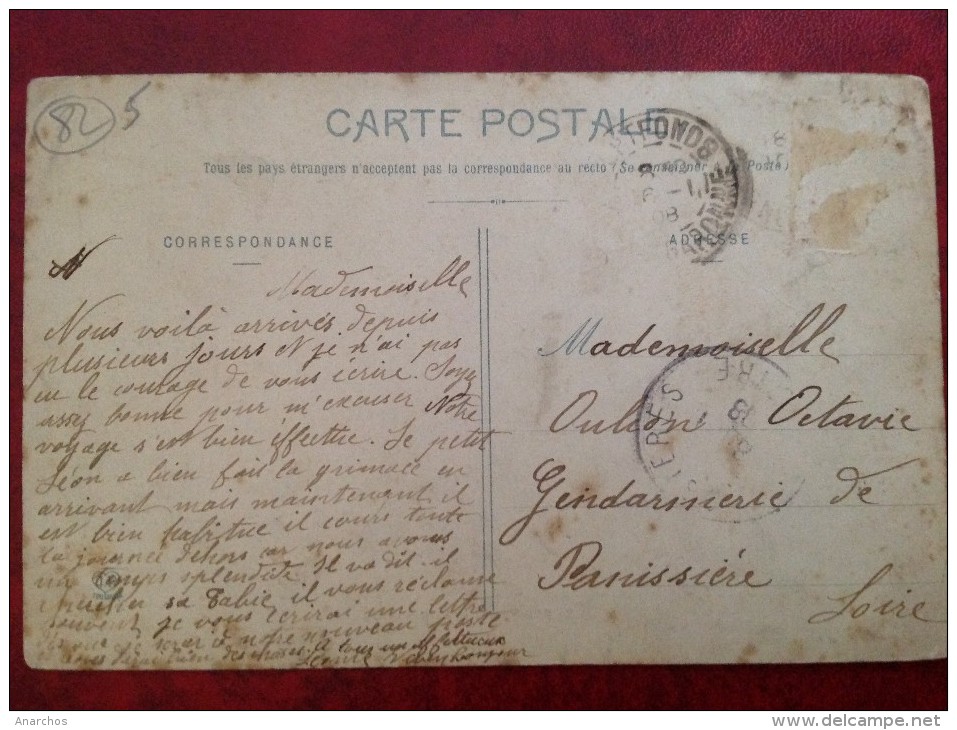 82 5
CARTE POSTALE
Tous les pays étrangers n'acceptent pas la correspondance au recto (Se renseigner à la Poste)
CORRESPONDANCE
Mademoiselle
Nous voilà arrivés depuis
plusieurs jours et je n'ai pas
eu le courage de vous écrire. Soyez
assez bonne pour m'excuser Notre
voyage s'est bien éffectué. Le petit
Léon a bien fait la grimace en
arrivant mais maintenant il
est bien habitué il cours toute
la journée dehors car nous avons
un temps splendide. Il va dit-il
sa il vous réclame
souvent je vous écrirai une lettre
notre nouveau poste
bien des choses à tous
bonjour
ADRESSE
Mademoiselle
Oulion Octavie
Gendarmerie de
Panissiére
Loire
GARONNE
Anarchos
delcampe.net